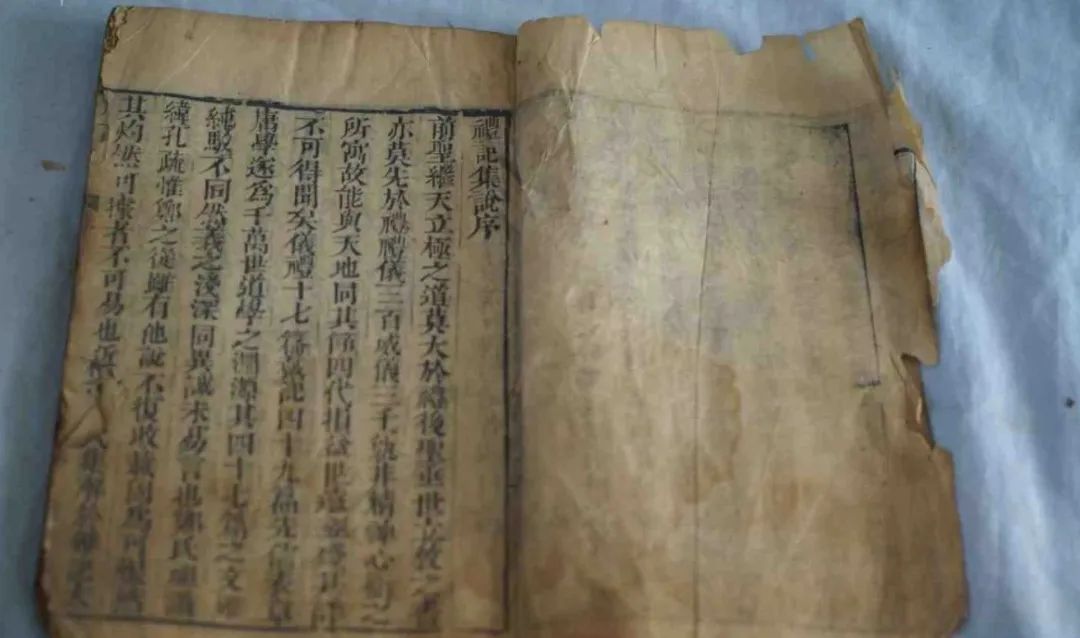 禮記集說序
前聖繼天立極之道莫大於禮後聖垂世立教之書
亦莫先於禮禮儀三百威儀三千孰非精神心術之
所寓故能與天地同其節四代損益世遠經殘其詳
不可得聞矣儀禮十七篇戴記四十九篇先儒表章
庸學遂爲千萬世道學之淵源其四十七篇之文雖
純駁不同然義之淺深同異誠未易言也鄭氏祖讖
緯孔疏惟鄭之從雖有他說不復收載固爲可恨然
其灼然可據者不可易也近世 氏集解於雜記大